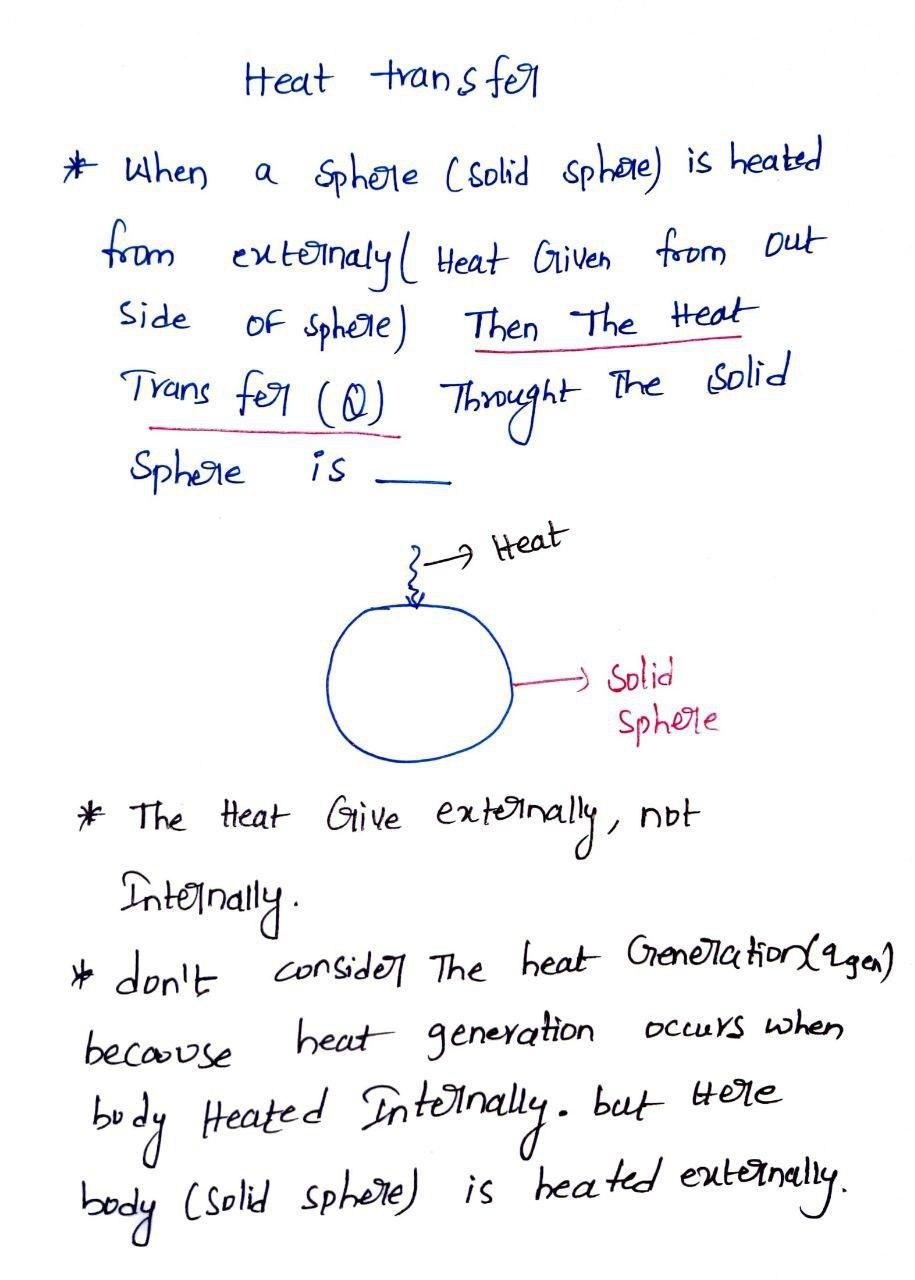 Heat transfer
* When a Sphere (Solid sphere) is heated
from externaly ( Heat Given from out
Side OF sphere) Then The Heat
Transfer (Q) Throught The Solid
Sphere is ___
→ Heat
→ Solid
Sphere
* The Heat Give externally, not
Internally.
* don't consider The heat Generation (qgen)
becaouse heat generation occurs when
body Heated Internally. but Here
body (Solid sphere) is heated externally.